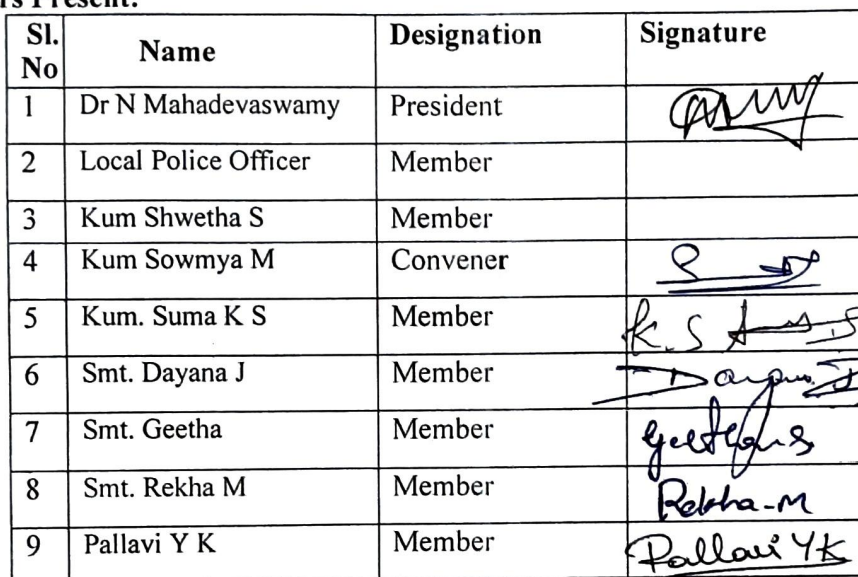 rs Present:
Sl. No Name Designation Signature
1 Dr N Mahadevaswamy President
2 Local Police Officer Member
3 Kum Shwetha S Member
4 Kum Sowmya M Convener
5 Kum. Suma K S Member K.S
6 Smt. Dayana J Member Dayana J
7 Smt. Geetha Member
8 Smt. Rekha M Member Rekha-M
9 Pallavi Y K Member Pallavi YK